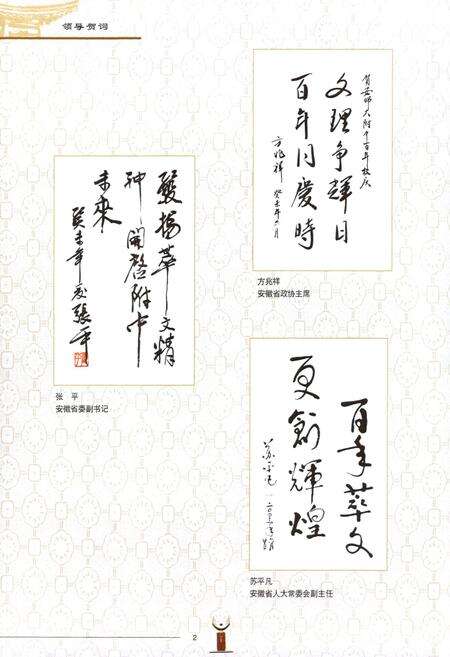 领导贺词
贺安师大附中百年校庆
文理争輝日
百年同慶時
方兆祥 癸未年六月
方兆祥
安徽省政协主席
發揚萃文精
神 開啓附中
未來
癸未年夏 張平
张 平
安徽省委副书记
百年萃文
更創輝煌
苏平凡
苏平凡
安徽省人大常委会副主任
2